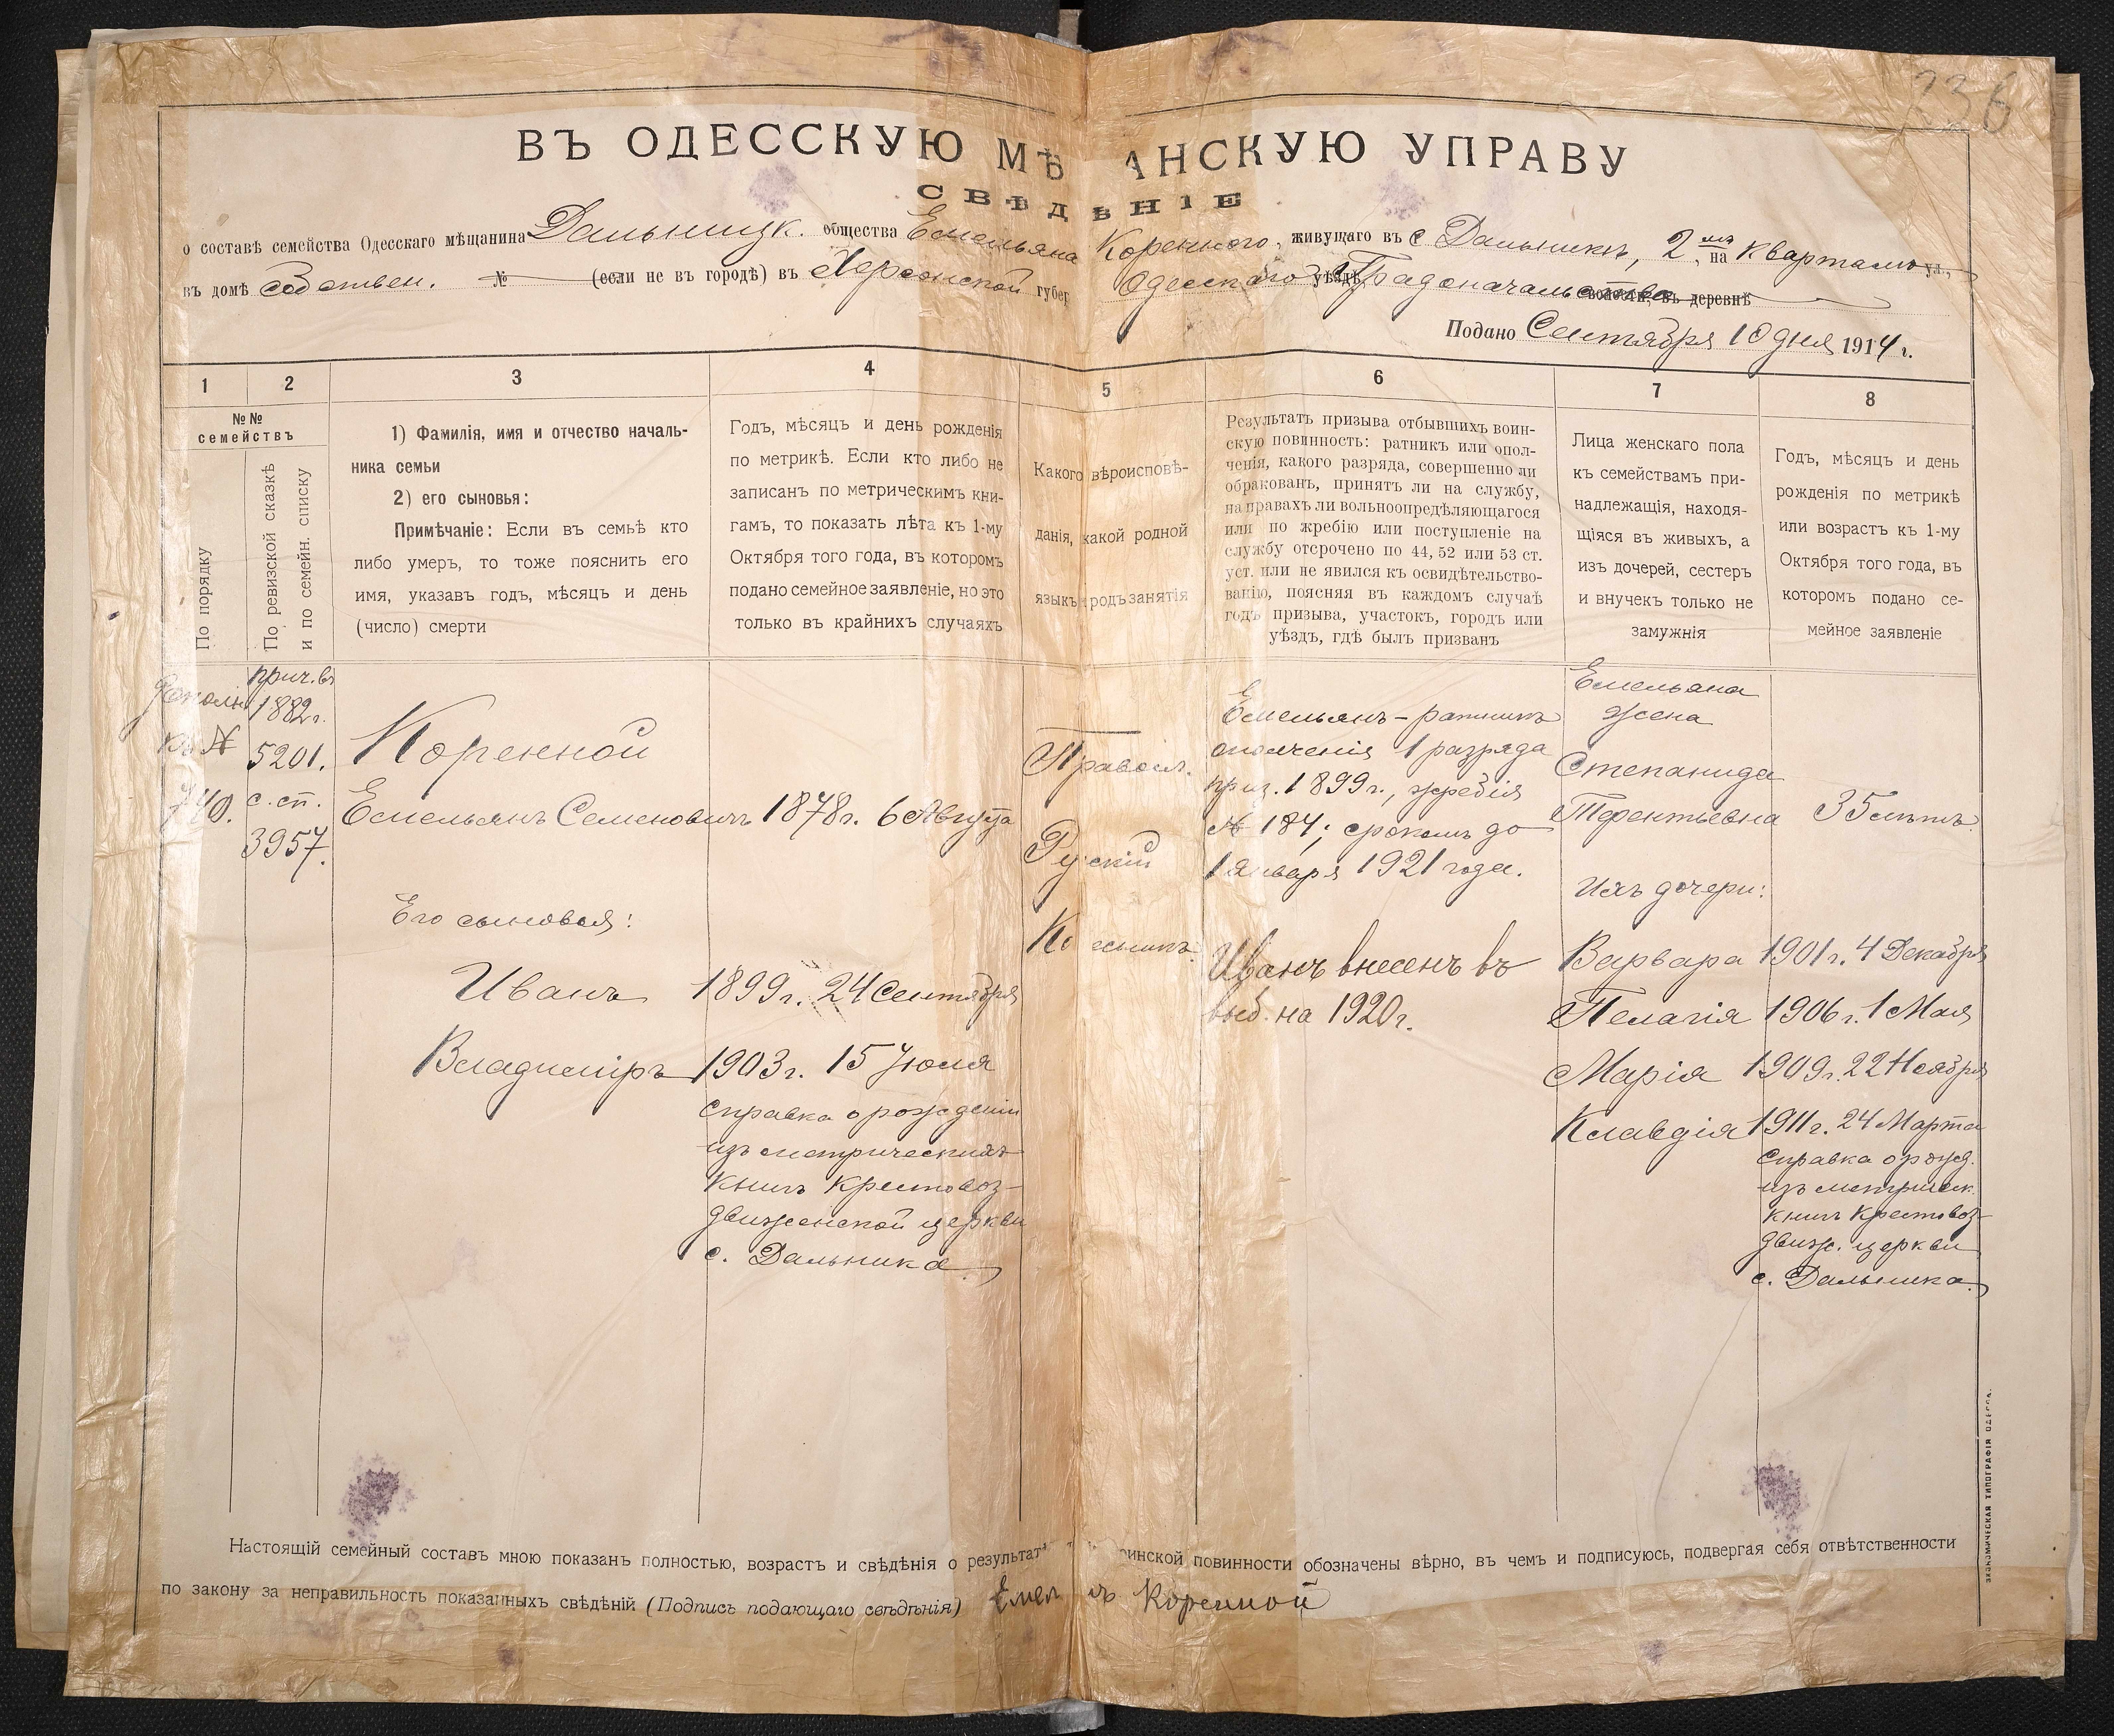 236
ВЪ ОДЕССКУЮ МѢ АНСКУЮ УПРАВУ
СВѢДѢНІЕ
о составѣ семейства Одесскаго мѣщанина Дальницк. общества Емельяна Коренного, живущаго въ с Дальникѣ, 2мъ на Кварталѣ ул.,
въ домѣ собствен. № (если не въ городѣ) въ Херсонской губер Одесскаго уѣздѣ Градоначальства волости, въ деревнѣ
Подано Сентября 10 дня 1914 г.
1 2 3 4 5 6 7 8
№№ семействъ
По порядку
По ревизской сказкѣ и по семейн. списку
1) Фамилія, имя и отчество началь-
ника семьи
2) его сыновья:
Примѣчаніе: Если въ семьѣ кто
либо умеръ, то тоже пояснить его
имя, указавъ годъ, мѣсяцъ и день
(число) смерти
Годъ, мѣсяцъ и день рожденія
по метрикѣ. Если кто либо не
записанъ по метрическимъ кни-
гамъ, то показать лѣта къ 1-му
Октября того года, въ которомъ
подано семейное заявленіе, но это
только въ крайнихъ случаяхъ
Какого вѣроисповѣ-
данія, какой родной
языкъ и родъ занятія
Результатъ призыва отбывшихъ воин-
скую повинность: ратникъ или опол-
ченія, какого разряда, совершенно ли
обракованъ, принятъ ли на службу,
на правахъ ли вольноопредѣляющагося
или по жребію или поступленіе на
службу отсрочено по 44, 52 или 53 ст.
уст. или не явился къ освидѣтельство-
ванію, поясняя въ каждомъ случаѣ
годъ призыва, участокъ, городъ или
уѣздъ, гдѣ былъ призванъ
Лица женскаго пола
къ семействамъ при-
надлежащія, находя-
щіяся въ живыхъ, а
изъ дочерей, сестеръ
и внучекъ только не
замужнія
Годъ, мѣсяцъ и день
рожденія по метрикѣ
или возрастъ къ 1-му
Октября того года, въ
которомъ подано се-
мейное заявленіе
дополн
къ №
740.
прич. въ
1882 г.
5201.
с. сп.
3957.
Коренной
Емельянъ Семеновичъ
Его сыновья:
Иванъ
Владиміръ
1878 г. 6 Августа
1899 г. 24 Сентября
1903 г. 15 Іюля
Справка о рожденіи
изъ метрическихъ
книгъ Крестовоз-
движенской церкви
с. Дальника
Правосл.
Рускій
Емельянъ - ратникъ
ополченія 1 разряда
приз. 1899 г., жребія
№ 184; срокомъ до
1 января 1921 года.
Иванъ внесенъ въ
выб. на 1920 г.
Емельяна
жена
Степанида
Терентьевна
Ихъ дочери:
Варвара
Пелагія
Марія
Клавдія
35 лѣтъ
1901 г. 4 Декабря
1906 г. 1 Мая
1909 г. 22 Ноября
1911 г. 24 Марта
Справка о рожд.
изъ метрическ.
книгъ Крестовоз-
движ. церкви
с. Дальника.
Настоящій семейный составъ мною показанъ полностью, возрастъ и свѣдѣнія о результат инской повинности обозначены вѣрно, въ чемъ и подписуюсь, подвергая себя отвѣтственности
по закону за неправильность показанныхъ свѣдѣній (Подпись подающаго свѣдѣнія) Емел нъ Коренной
ЭКОНОМИЧЕСКАЯ ТИПОГРАФІЯ ОДЕССА.